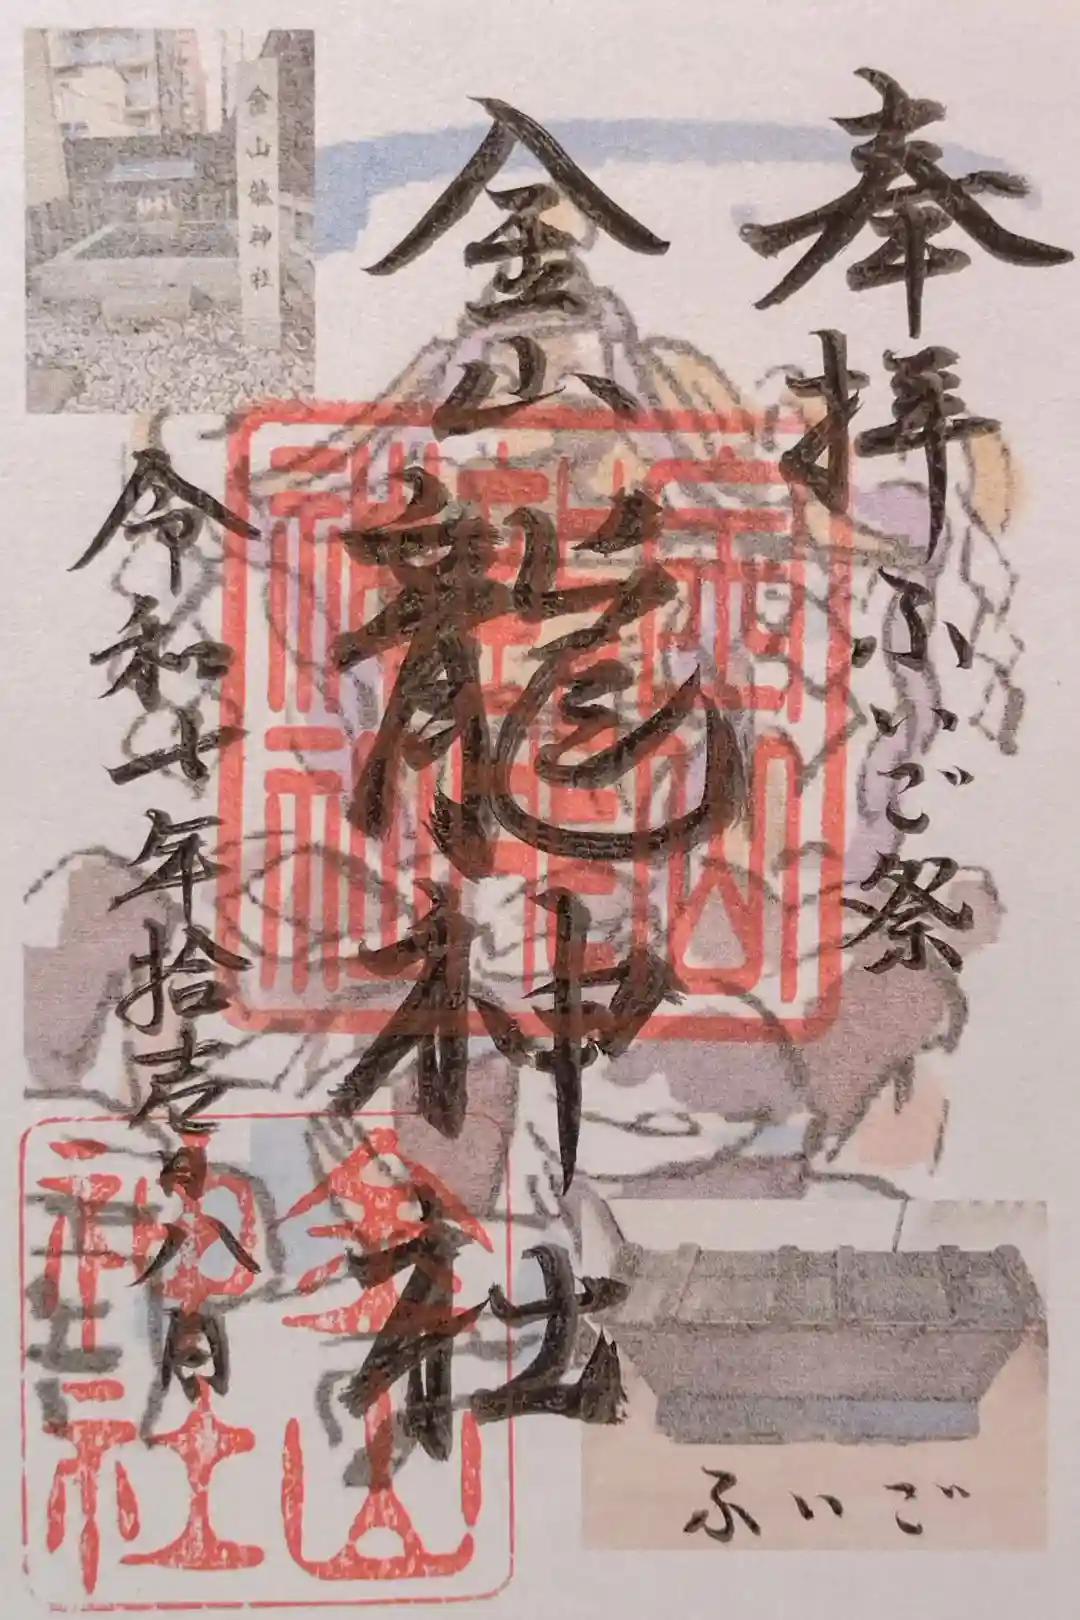 奉拝
ふいご祭
金山龍神社
令和七年拾壱月八日
金山龍神社
金山神社
ふいご